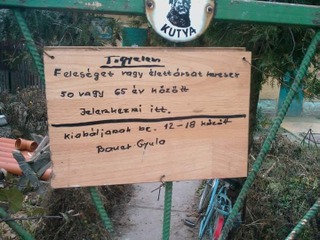 KUTYA
Figyelem
Feleséget vagy élettársat keresek
50 vagy 65 év között
Jelentkezni itt.
Kiabáljanak be. 12-18 között
Bauer Gyula